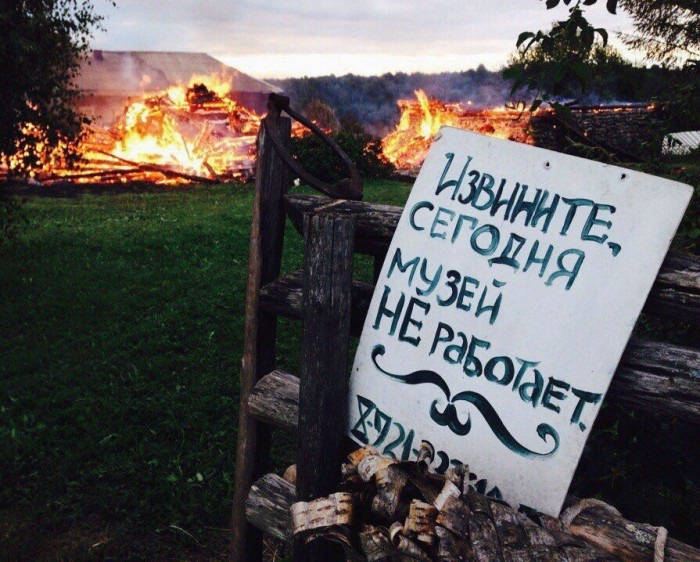 Извините,
сегодня
музей
НЕ работает.
8-921-